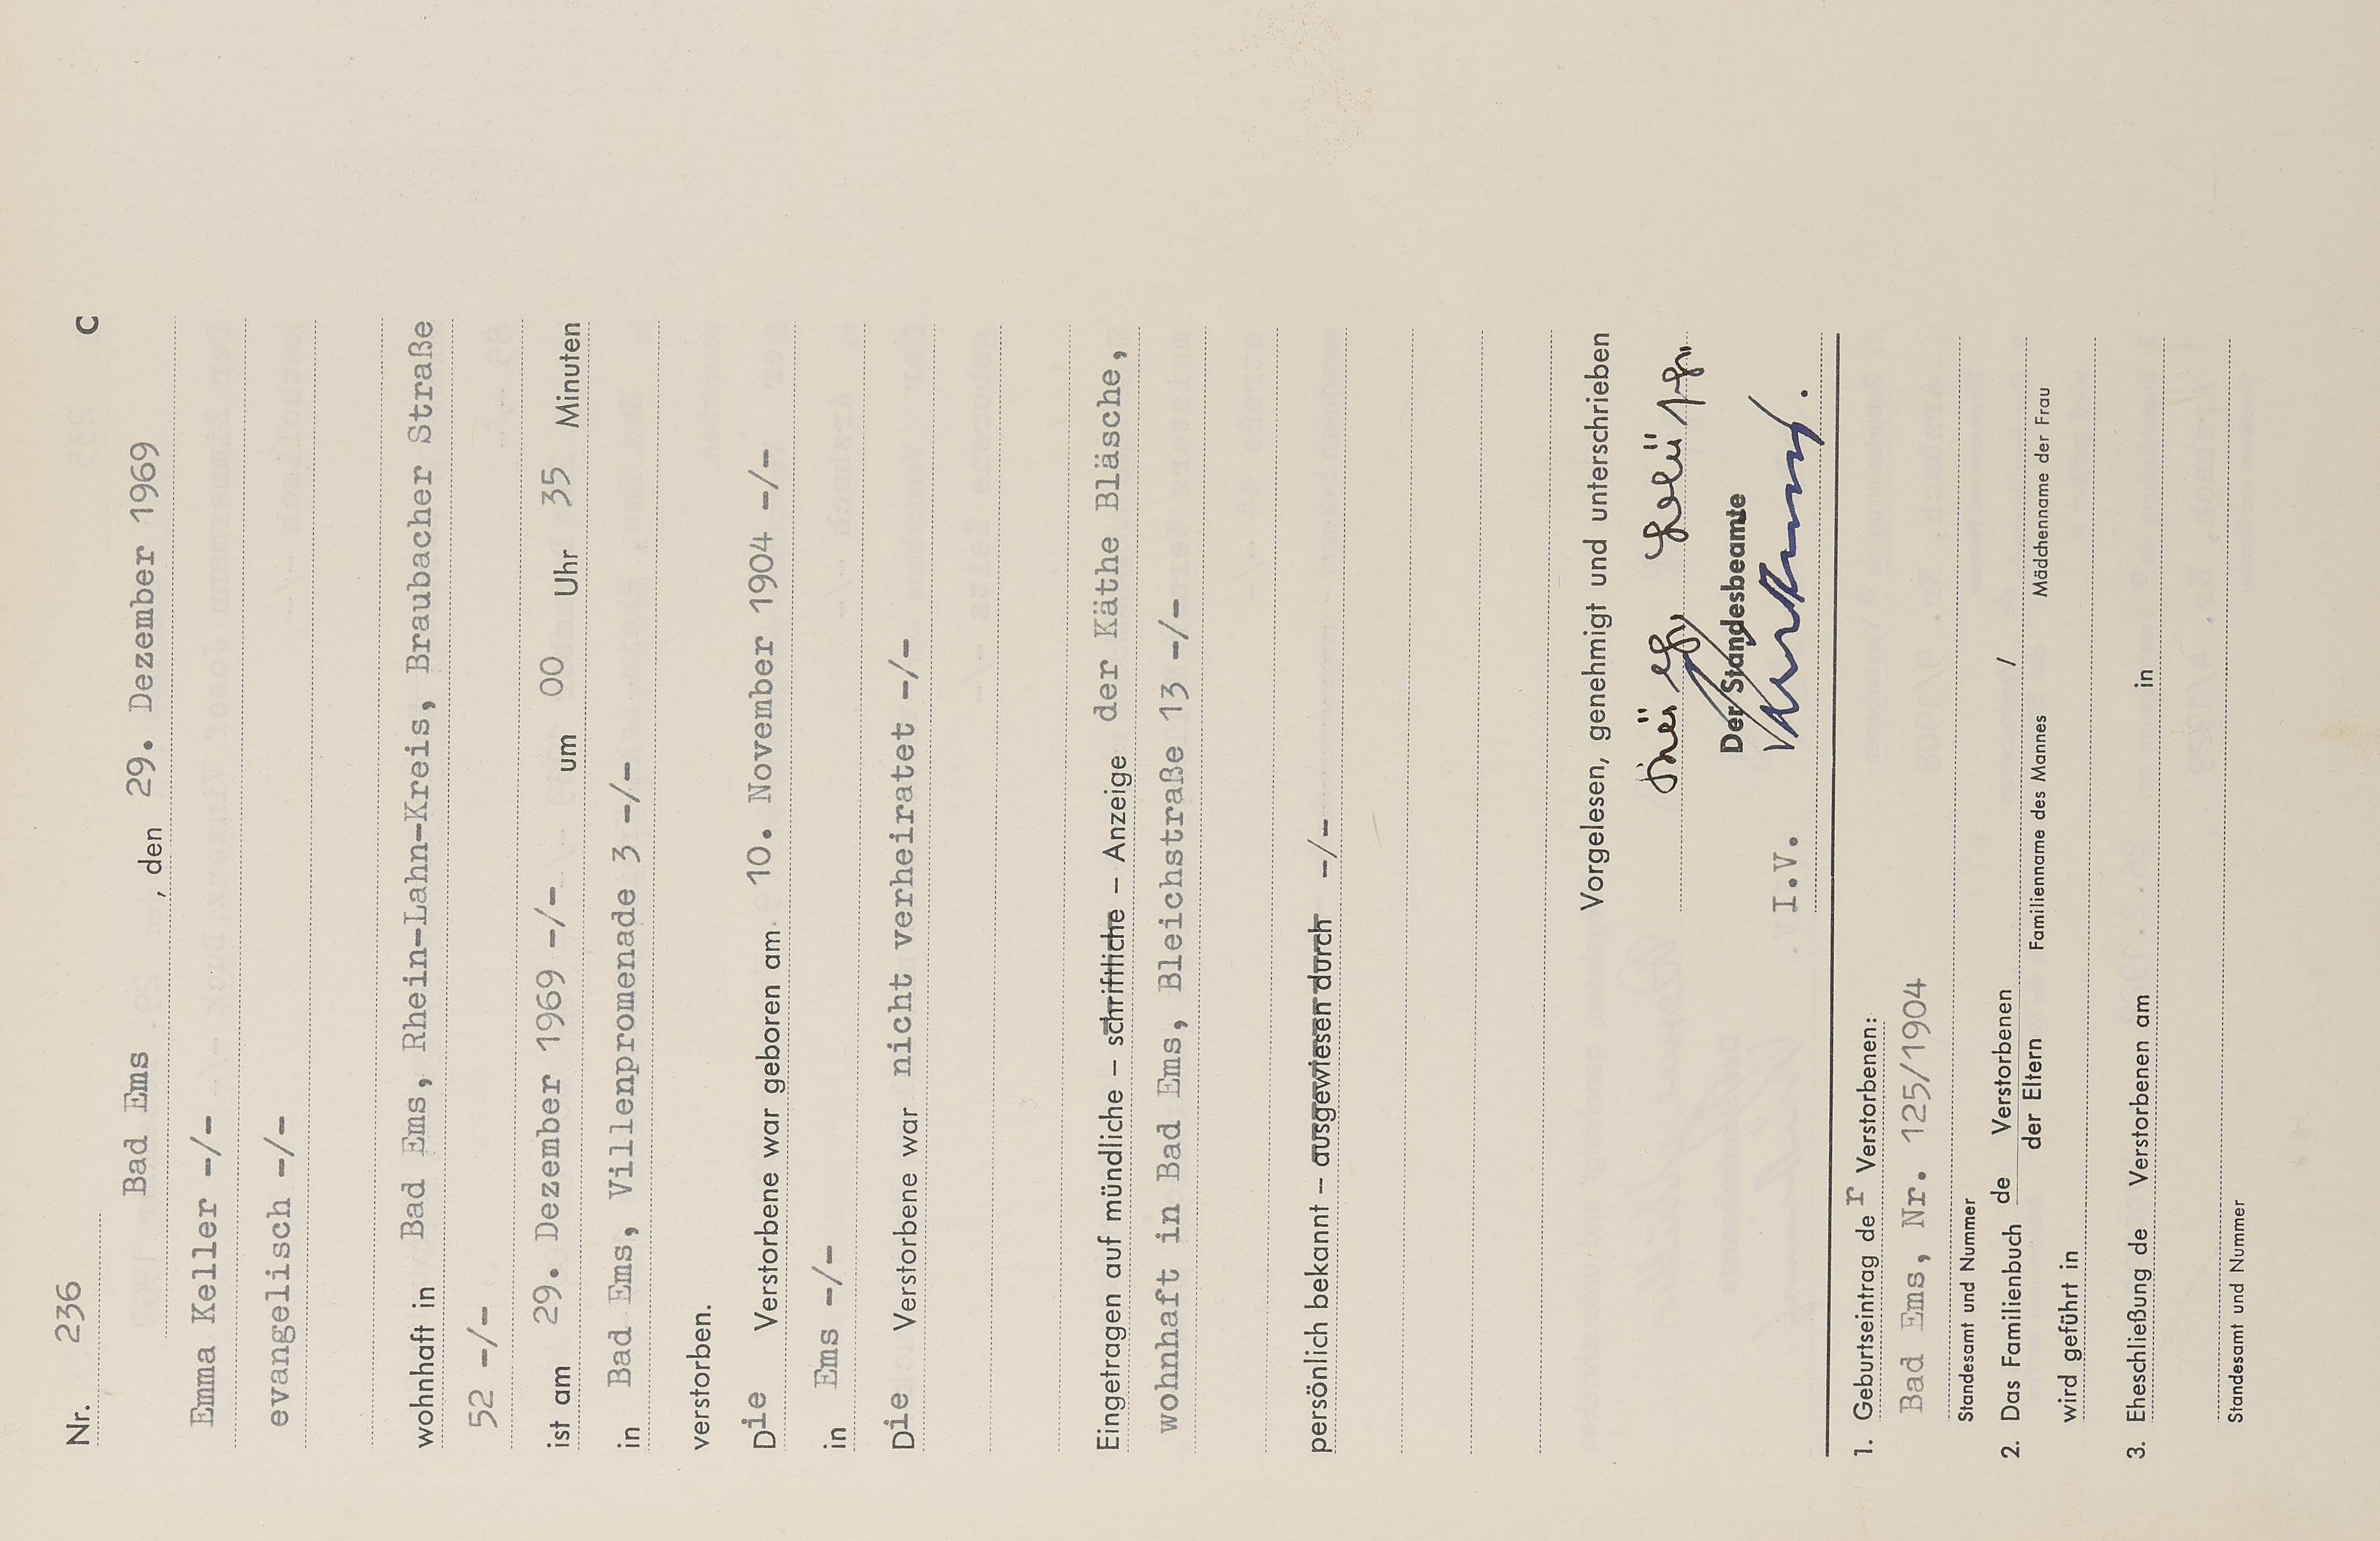 Nr. 236 C
Bad Ems , den 29. Dezember 1969
Emma Keller -/-
evangelisch -/-
wohnhaft in Bad Ems, Rhein-Lahn-Kreis, Braubacher Straße
52 -/-
ist am 29. Dezember 1969 -/- um 00 Uhr 35 Minuten
in Bad Ems, Villenpromenade 3 -/-
verstorben.
Die Verstorbene war geboren am 10. November 1904 -/-
in Ems -/-
Die Verstorbene war nicht verheiratet -/-
Eingetragen auf mündliche – schriftliche – Anzeige der Käthe Bläsche,
wohnhaft in Bad Ems, Bleichstraße 13 -/-
persönlich bekannt – ausgewiesen durch -/-
Vorgelesen, genehmigt und unterschrieben
Der Standesbeamte
I.V.
1. Geburtseintrag der Verstorbenen:
Bad Ems, Nr. 125/1904
Standesamt und Nummer
2. Das Familienbuch de Verstorbenen /
der Eltern Familienname des Mannes Mädchenname der Frau
wird geführt in
3. Eheschließung de Verstorbenen am in
Standesamt und Nummer